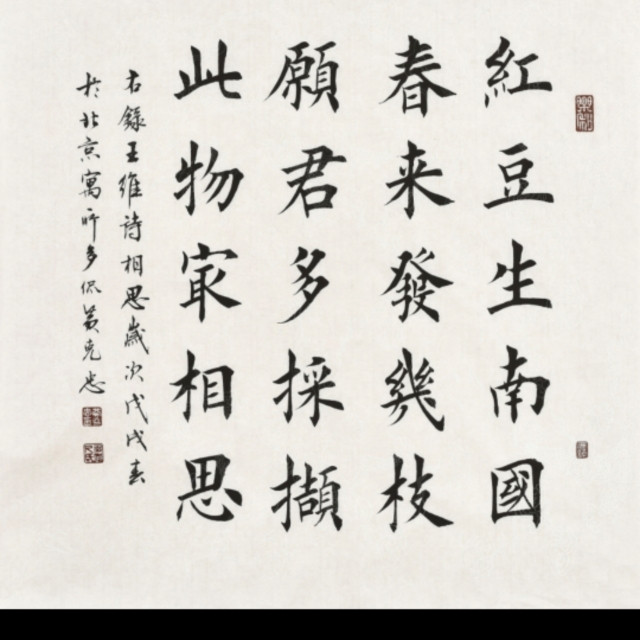 紅豆生南國
春来發幾枝
願君多採擷
此物㝡相思
右錄王維詩相思歲次戊戌春
於北京寓所多侃黃克忠